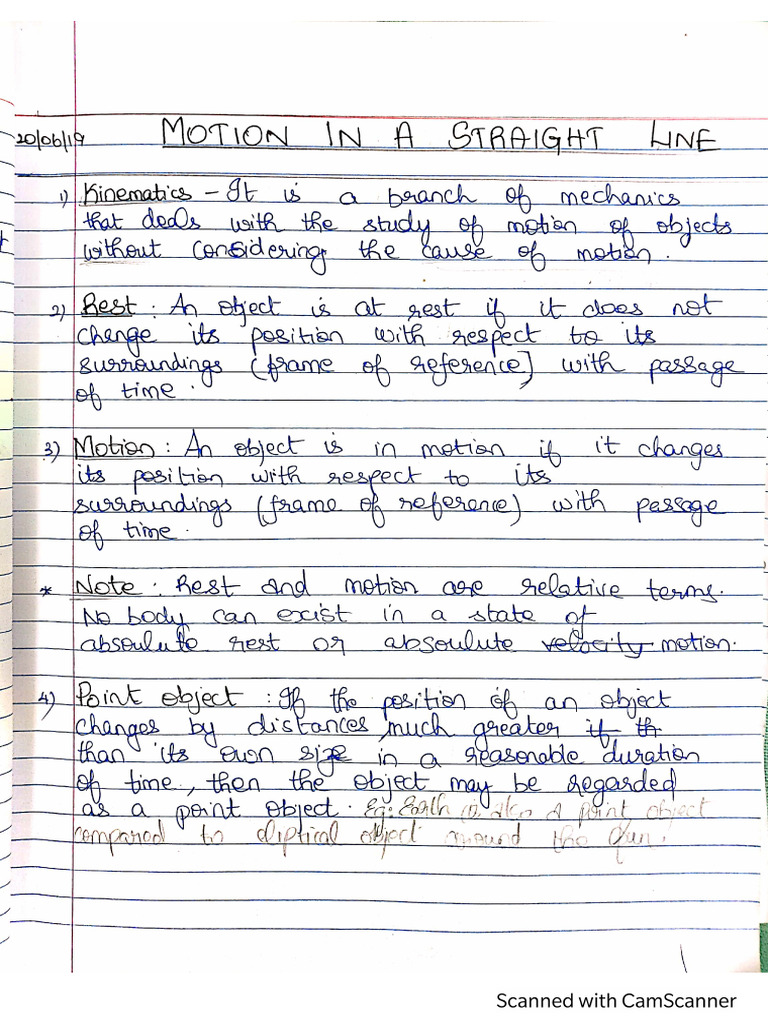 20/06/19 MOTION IN A STRAIGHT LINE
1) Kinematics - It is a branch of mechanics
that deals with the study of motion of objects
without considering the cause of motion.
2) Rest : An object is at rest if it does not
change its position with respect to its
surroundings (frame of reference) with passage
of time.
3) Motion : An object is in motion if it changes
its position with respect to its
surroundings (frame of reference) with passage
of time.
* Note : Rest and motion are relative terms.
No body can exist in a state of
absoulute rest or absoulute velocity motion.
4) Point object : If the position of an object
changes by distances much greater if th
than its own size in a reasonable duration
of time, then the object may be regarded
as a point object. Eg: Earth is also a point object
compared to eliptical object around the Sun.
1
Scanned with CamScanner